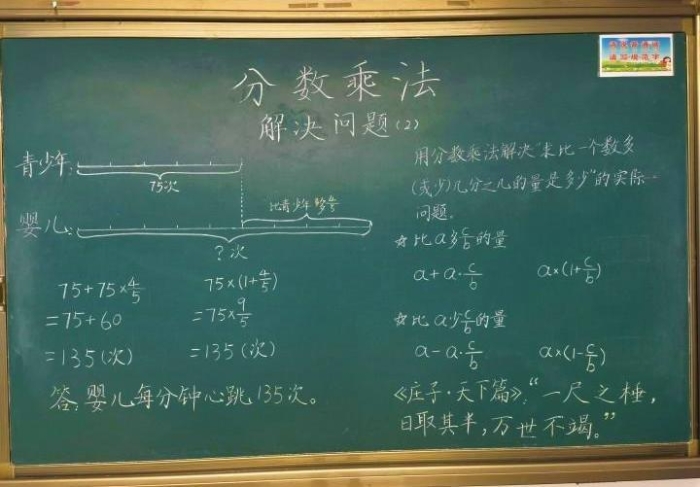 分数乘法
解决问题(2)
青少年:
75次
婴儿:
比青少年多4/5
?次
75+75×4/5
=75+60
=135(次)
75×(1+4/5)
=75×9/5
=135(次)
答:婴儿每分钟心跳135次。
用分数乘法解决“求比一个数多
(或少)几分之几的量是多少”的实际
问题。
☆比a多c/b的量
a+a·c/b a×(1+c/b)
☆比a少c/b的量
a-a·c/b a×(1-c/b)
《庄子·天下篇》:“一尺之棰,
日取其半,万世不竭。”